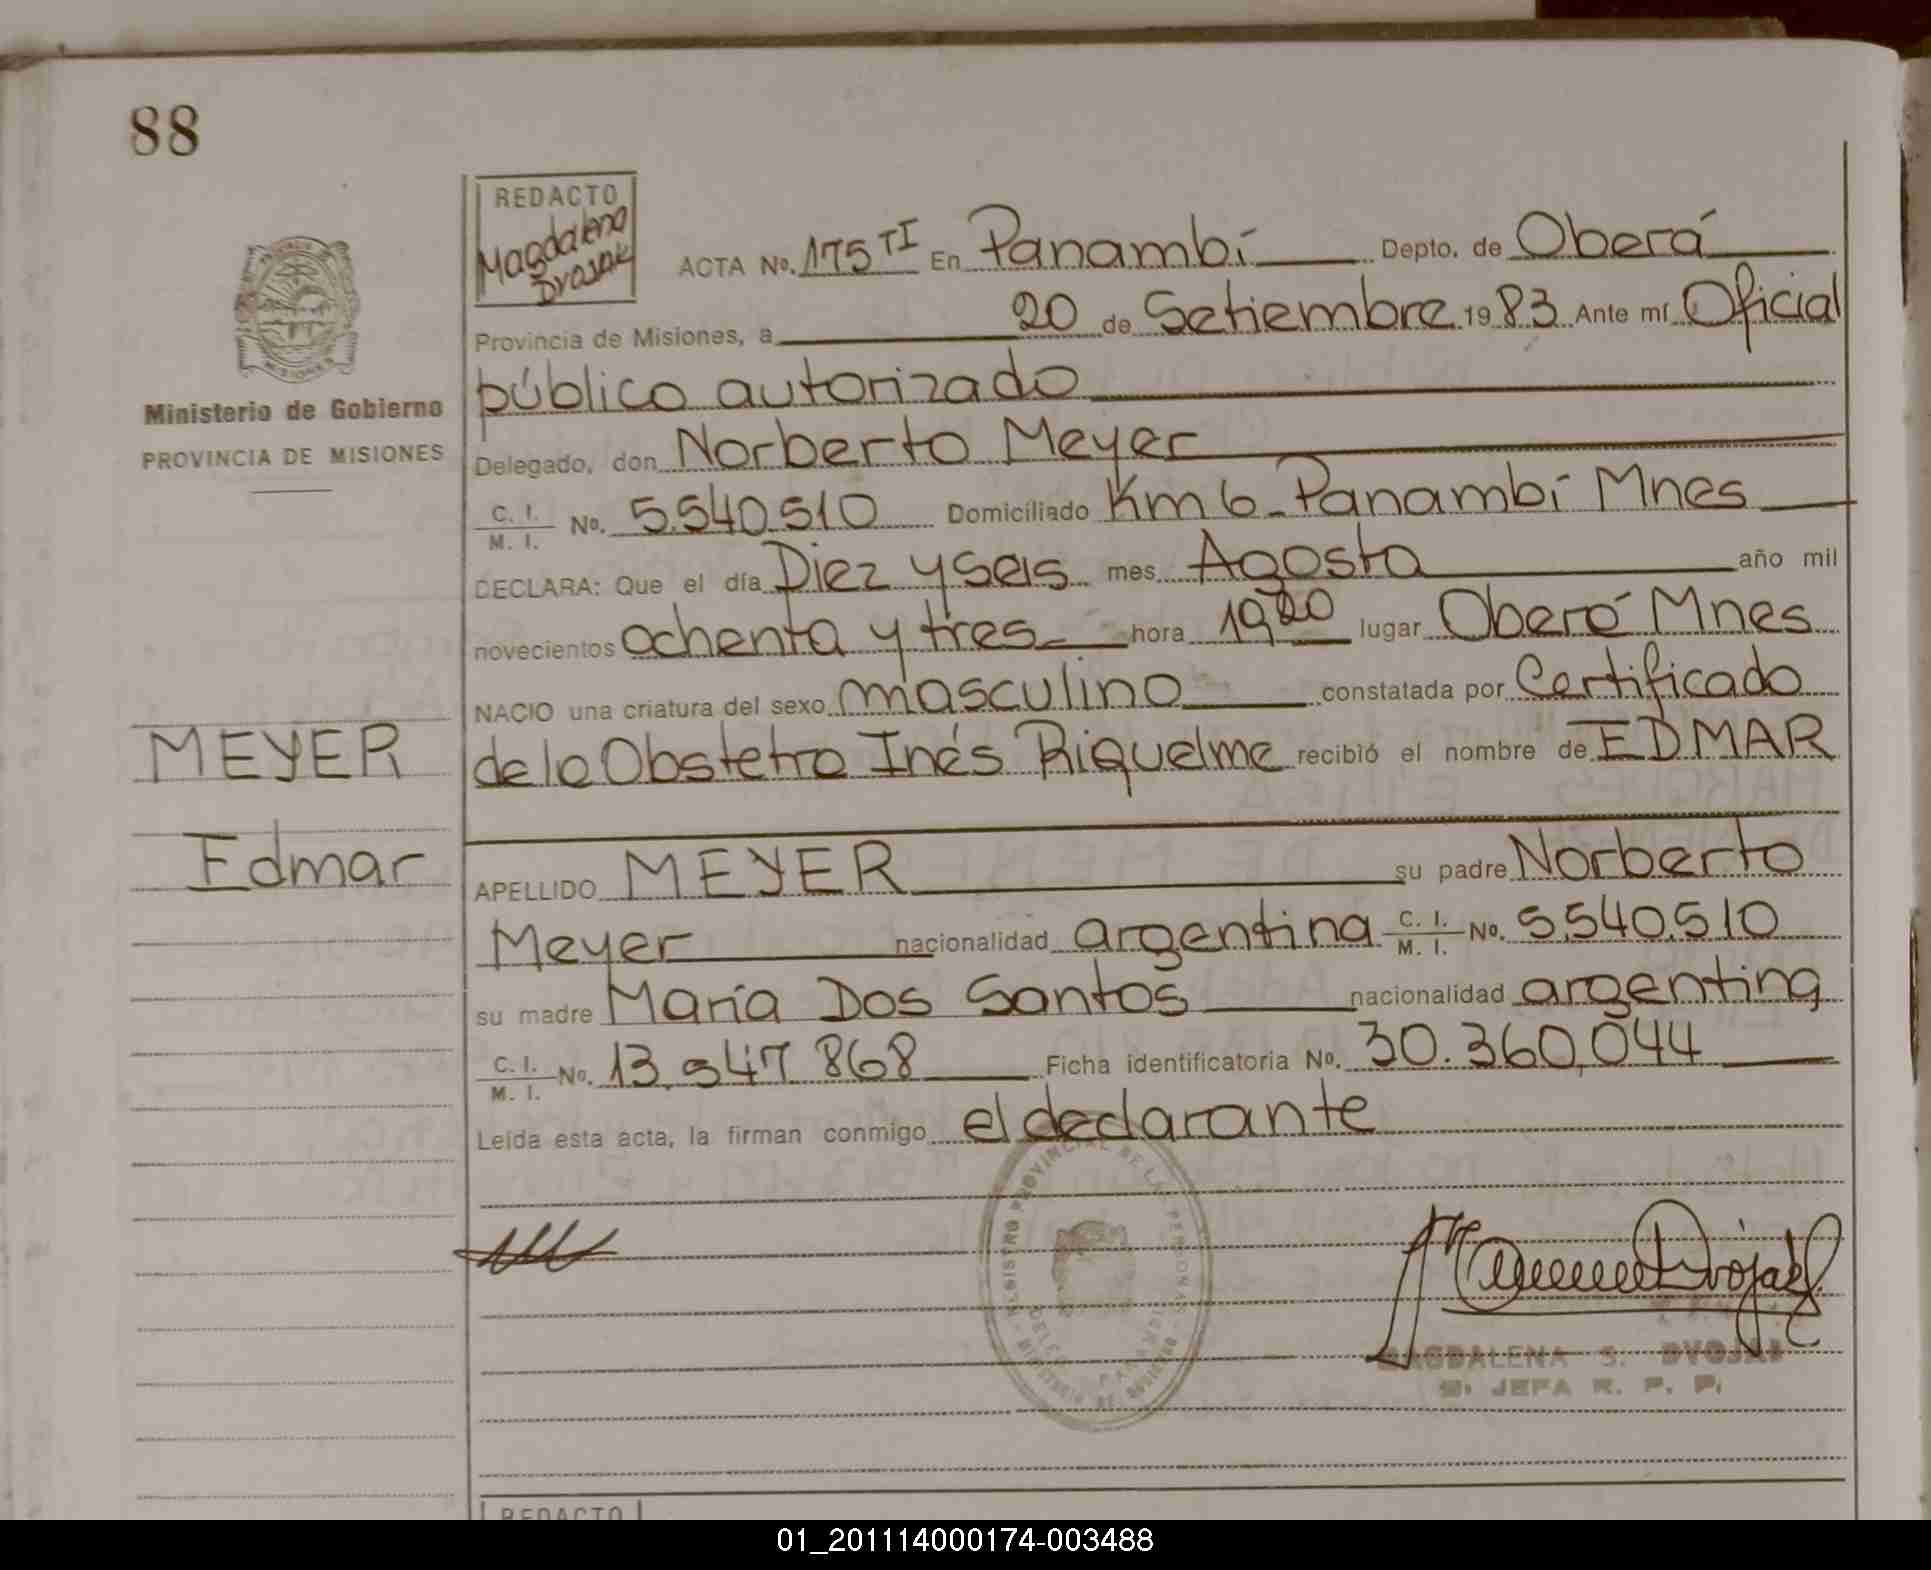 88
REDACTO
Magdalena
Dvojak
ACTA No. 175 TI En Panambí Depto. de Oberá
Provincia de Misiones, a 20 de Setiembre 1983 Ante mí Oficial
público autorizado
Ministerio de Gobierno
PROVINCIA DE MISIONES
Delegado, don Norberto Meyer
C. I. M. I. No. 5.540.510 Domiciliado Km 6 - Panambí Mnes
DECLARA: Que el día Diez y seis mes Agosto año mil
novecientos ochenta y tres hora 19,20 lugar Oberá Mnes
NACIO una criatura del sexo masculino constatada por Certificado
de la Obstetra Inés Riquelme recibió el nombre de EDMAR
MEYER
Edmar
APELLIDO MEYER su padre Norberto
Meyer nacionalidad argentina C. I. M. I. No. 5.540.510
su madre María Dos Santos nacionalidad argentina
C. I. M. I. No. 13.947.868 Ficha identificatoria No. 30.360.044
Leída esta acta, la firman conmigo el declarante
REGISTRO PROVINCIAL DE LAS PERSONAS
MAGDALENA S. DVOJAK
JEFA R. P. P.
REDACTO
01_201114000174-003488